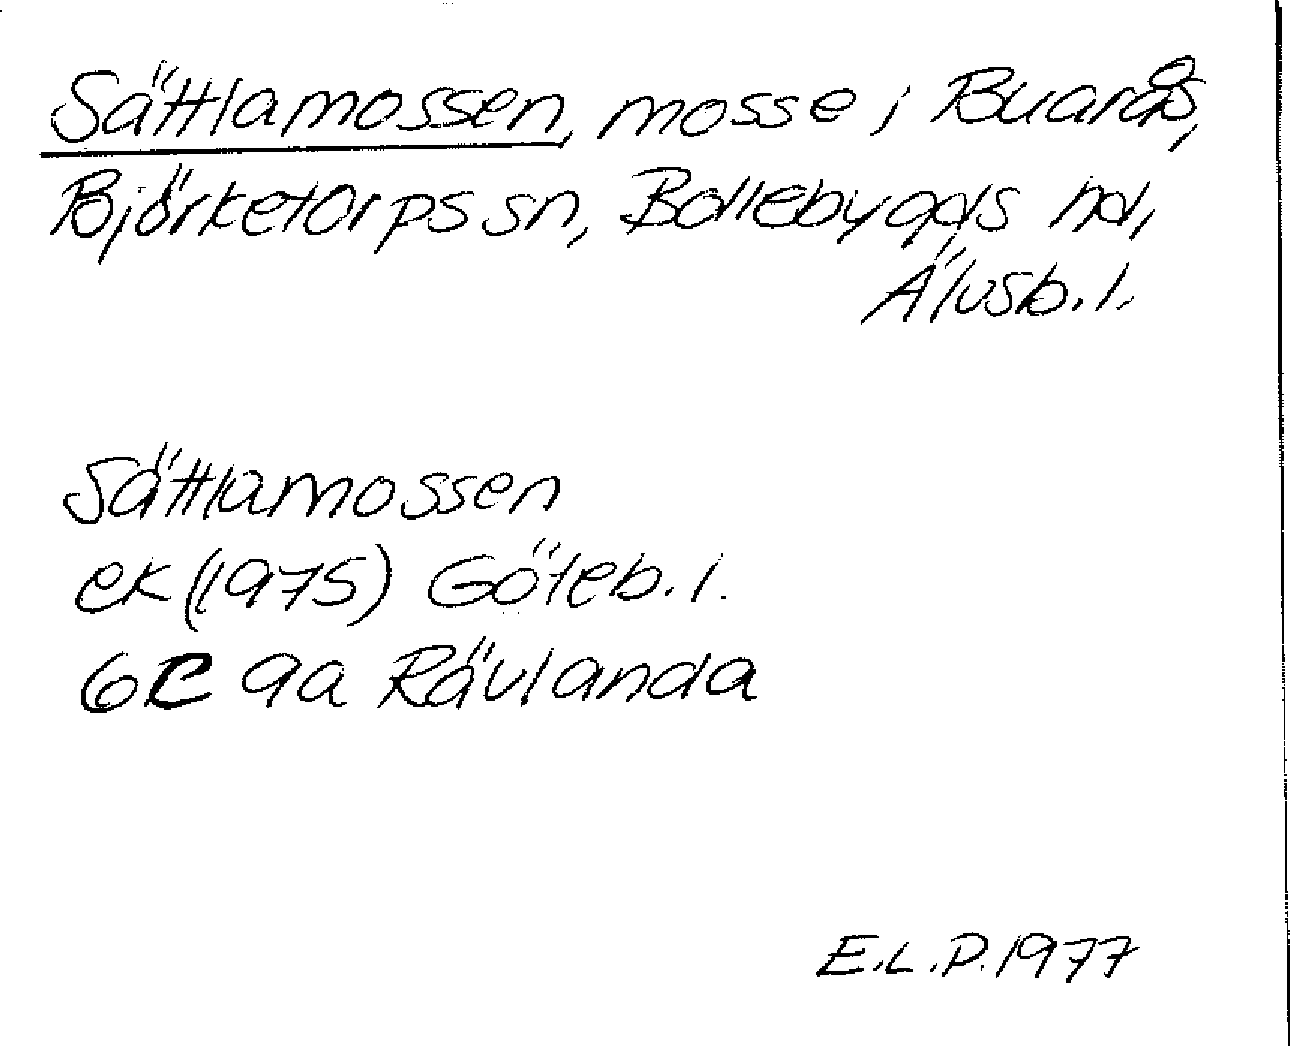 Sättlamossen, mosse i Buarås,
Björketorps sn, Bollebygds hd,
Älvsb. l.
Sättlamossen
ek (1975) Göteb. l.
6C 9a Rävlanda
E.L.P. 1977